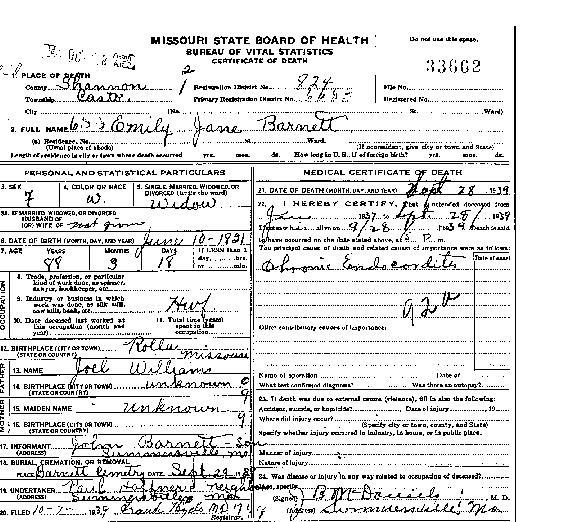 MISSOURI STATE BOARD OF HEALTH
BUREAU OF VITAL STATISTICS
CERTIFICATE OF DEATH
Do not use this space.
33662
1. PLACE OF DEATH
County Shannon
Township
Registration District No. 824
Primary Registration District No.
File No.
Registered No.
City (No. St. Ward)
2. FULL NAME Emily Jane Barnett
(a) Residence, No. St. Ward.
(Usual place of abode) (If nonresident, give city or town and State)
Length of residence in city or town where death occurred yrs. mos. ds. How long in U. S., if of foreign birth? yrs. mos. ds.
PERSONAL AND STATISTICAL PARTICULARS
3. SEX
F
4. COLOR OR RACE
W.
5. SINGLE, MARRIED, WIDOWED, OR DIVORCED (write the word)
Widow
5A. IF MARRIED, WIDOWED, OR DIVORCED
HUSBAND OF
(OR) WIFE OF not given
6. DATE OF BIRTH (MONTH, DAY, AND YEAR) June 10 - 1851
7. AGE YEARS MONTHS DAYS If LESS than 1 day, hrs. or min.
88 3 18
OCCUPATION
8. Trade, profession, or particular kind of work done, as spinner, sawyer, bookkeeper, etc.
9. Industry or business in which work was done, as silk mill, saw mill, bank, etc.
10. Date deceased last worked at this occupation (month and year)
11. Total time (years) spent in this occupation
12. BIRTHPLACE (CITY OR TOWN) Rolla
(STATE OR COUNTRY) Missouri
FATHER
13. NAME Joel Williams
14. BIRTHPLACE (CITY OR TOWN) unknown
(STATE OR COUNTRY)
MOTHER
15. MAIDEN NAME unknown
16. BIRTHPLACE (CITY OR TOWN)
(STATE OR COUNTRY)
17. INFORMANT John Barnett - son
(ADDRESS) Summersville mo
18. BURIAL, CREMATION, OR REMOVAL
PLACE Barnett Cemetry DATE Sept 29
19. UNDERTAKER Paul
(ADDRESS) Summersville mo
20. FILED 10-2- 1939
Registrar.
MEDICAL CERTIFICATE OF DEATH
21. DATE OF DEATH (MONTH, DAY, AND YEAR) Sept 28 1939
22. I HEREBY CERTIFY, That I attended deceased from
1937 to Sept 28 / 1939
I last saw h alive on 9/28 1939 death is said
to have occurred on the date stated above, at P. m.
The principal cause of death and related causes of importance were as follows:
Date of onset
Chronic Endocarditis
92a
Other contributory causes of importance:
Name of operation Date of
What test confirmed diagnosis? Was there an autopsy?
23. If death was due to external causes (violence), fill in also the following:
Accident, suicide, or homicide? Date of injury 19
Where did injury occur?
(Specify city or town, county, and State)
Specify whether injury occurred in industry, in home, or in public place.
Manner of injury
Nature of injury
24. Was disease or injury in any way related to occupation of deceased?
If so, specify
(Signed) M. D.
(Address) Summersville, Mo